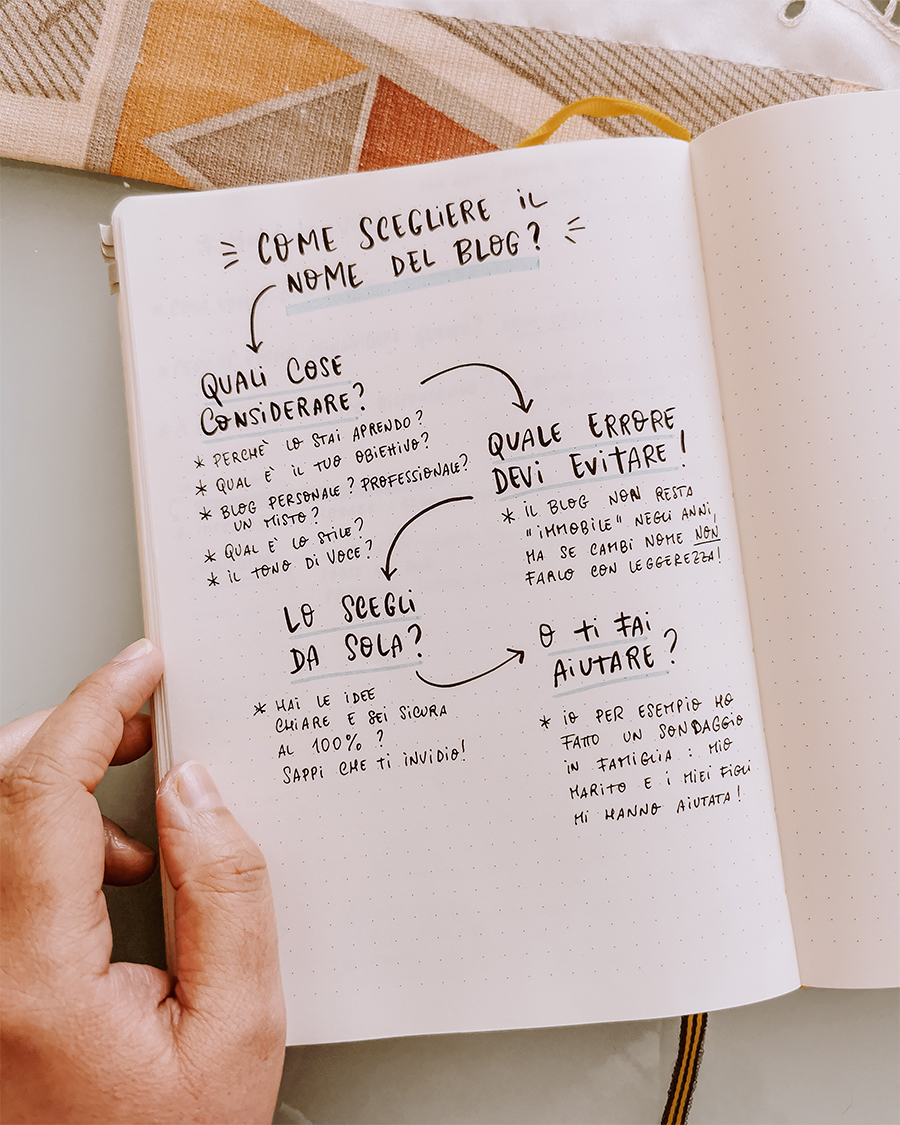 COME SCEGLIERE IL
NOME DEL BLOG?
QUALI COSE
CONSIDERARE?
* PERCHÈ LO STAI APRENDO?
* QUAL È IL TUO OBIETTIVO?
* BLOG PERSONALE? PROFESSIONALE?
UN MISTO?
* QUAL È LO STILE?
* IL TONO DI VOCE?
QUALE ERRORE
DEVI EVITARE!
* IL BLOG NON RESTA
"IMMOBILE" NEGLI ANNI,
MA SE CAMBI NOME NON
FARLO CON LEGGEREZZA!
LO SCEGLI
DA SOLA?
* HAI LE IDEE
CHIARE E SEI SICURA
AL 100%?
SAPPI CHE TI INVIDIO!
O TI FAI
AIUTARE?
* IO PER ESEMPIO HO
FATTO UN SONDAGGIO
IN FAMIGLIA: MIO
MARITO E I MIEI FIGLI
MI HANNO AIUTATA!